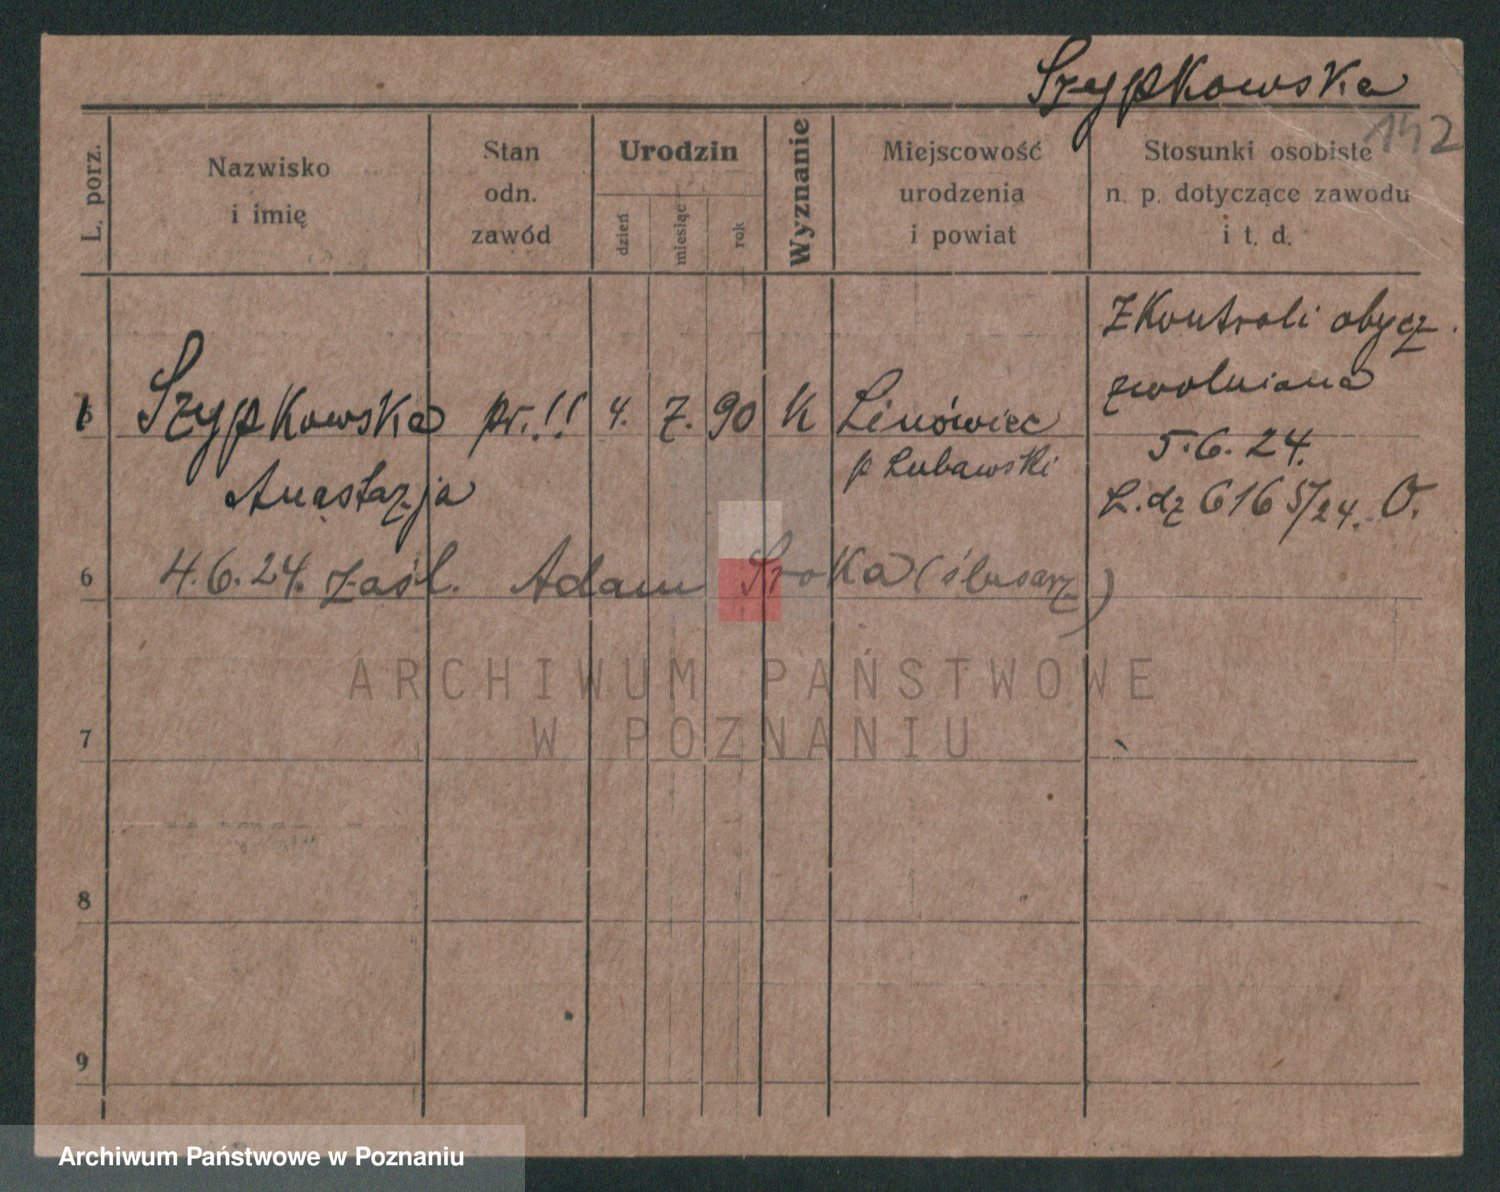 Szypkowska
142
L. porz.
Nazwisko
i imię
Stan
odn.
zawód
Urodzin
dzień
miesiąc
rok
Wyznanie
Miejscowość
urodzenia
i powiat
Stosunki osobiste
n. p. dotyczące zawodu
i t. d.
Z Kontroli obycz.
zwolniana
5.6.24.
L.dz 6165/24. O.
Szypkowska pr.!! 4. 7. 90 K Linówiec
p Lubawski
Anastazja
6 4.6.24. zaśl. Adam Sroka (ślusarz)
7
8
9
ARCHIWUM PAŃSTWOWE
W POZNANIU
Archiwum Państwowe w Poznaniu